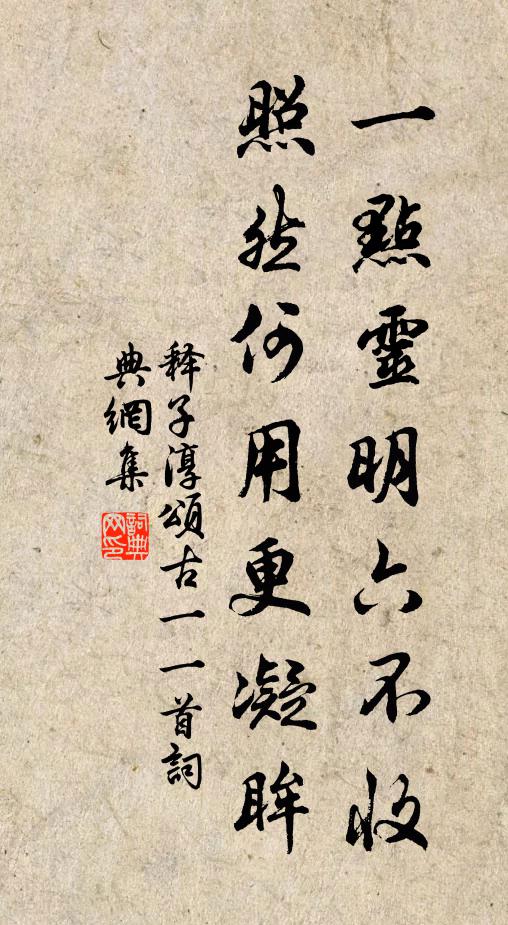 一點靈明六不收
照然何用更凝眸
释子淳頌古一一首詞
典網集
詞典网印